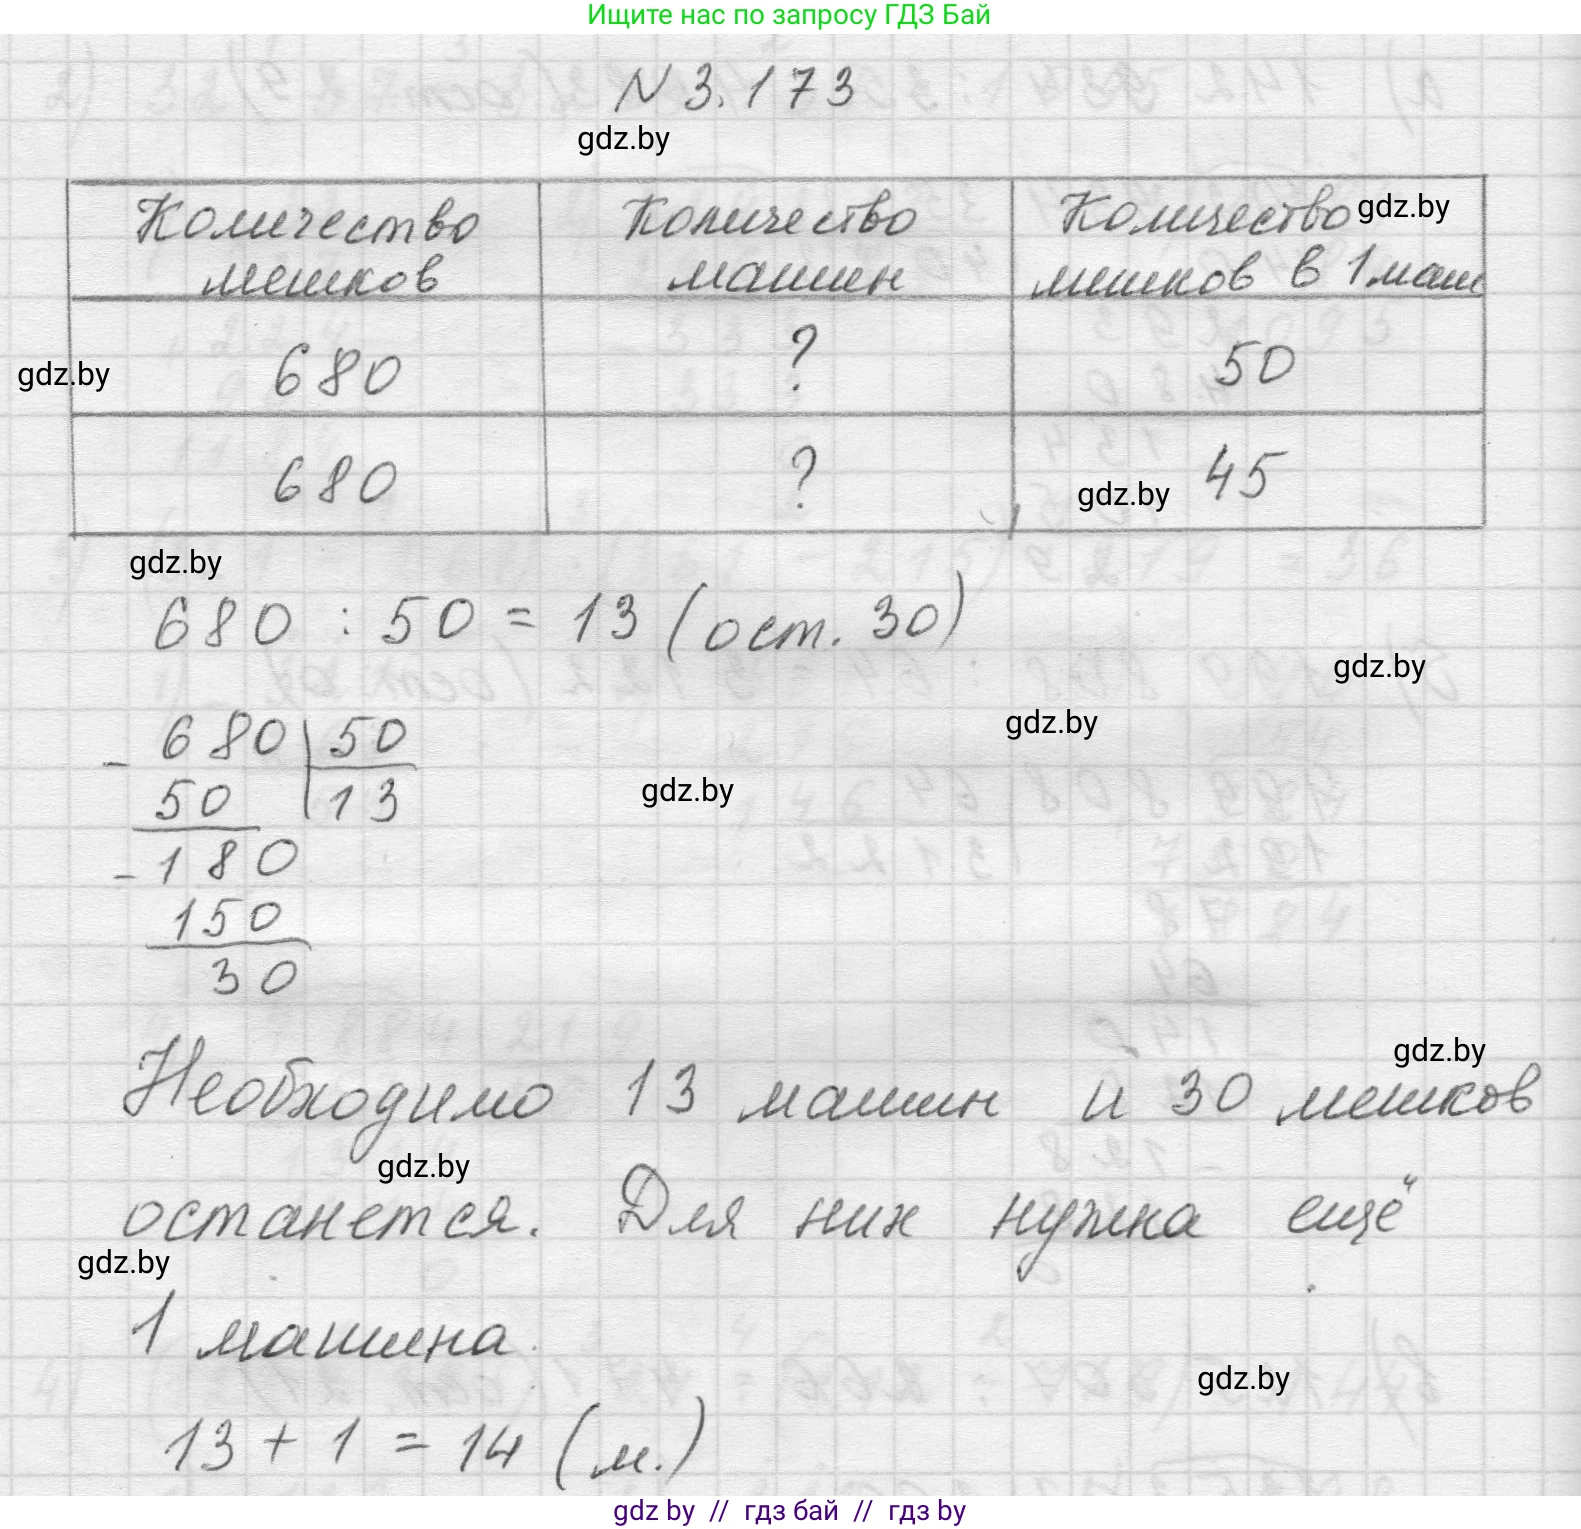 Ищите нас по запросу ГДЗ Бай
N 3.173
gdz.by
Количество мешков
Количество машин
Количество мешков в 1 маш
gdz.by
680
?
50
gdz.by
680
?
45
gdz.by
gdz.by
680 : 50 = 13 (ост. 30)
gdz.by
gdz.by
- 680 | 50
50 | 13
gdz.by
- 180
150
30
gdz.by
Необходимо 13 машин и 30 мешков
gdz.by
останется. Для них нужна ещё
gdz.by
1 машина.
gdz.by
13 + 1 = 14 (м.)
gdz by // гдз бай // гдз by